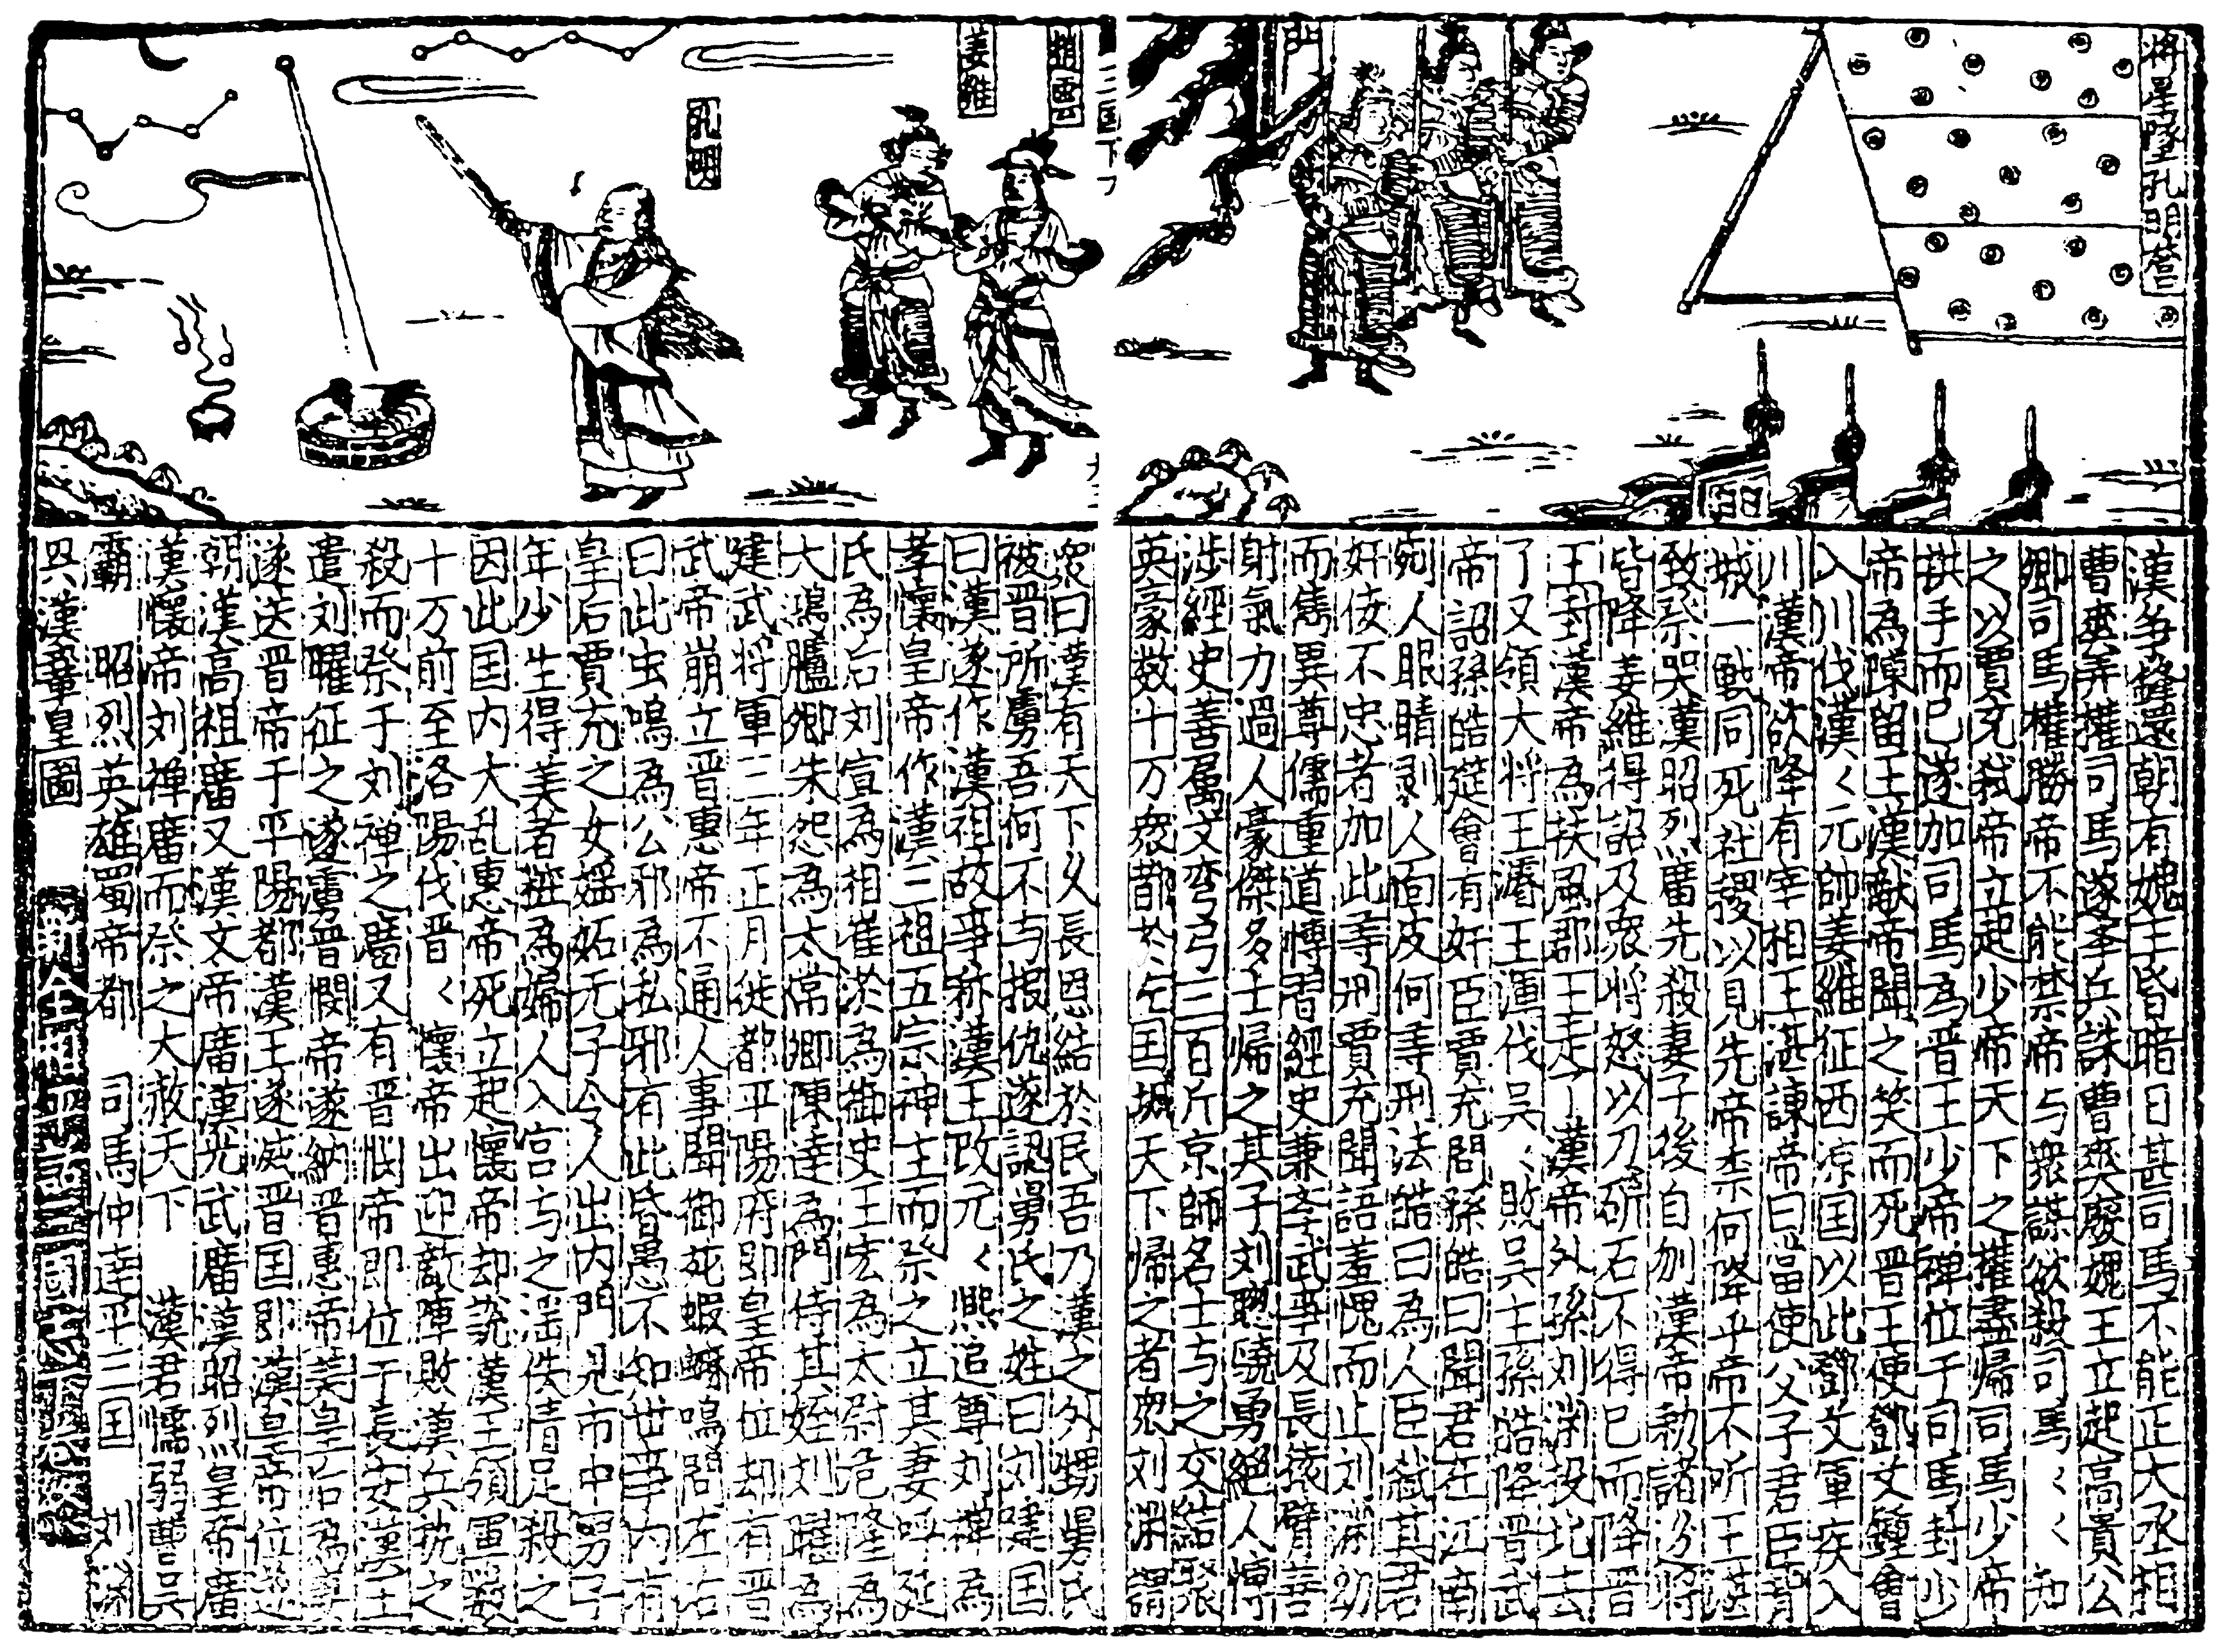 將星墜孔明營
姜維
孔明
三国下
漢爭鋒還朝有魏主昏暗日甚司馬不能正大丞相
曹爽弄權司馬遂举兵誅曹爽廢魏王立起高貴公
卿司馬權勝帝不能禁帝与衆謀欲殺司馬〻〻知
之以賈充弒帝立起少帝天下之權盡歸司馬少帝
拱手而已遂加司馬為晋王少帝禅位于司馬封少
帝為陳留王漢献帝聞之笑而死晋王使鄧艾鍾會
入川伐漢〻元帥姜維征西凉国以此鄧艾軍疾入
川漢帝欲降有宰相王諶諫帝曰當使父子君臣背
城一戰同死社稷以見先帝柰何降乎帝不听王
致祭哭漢昭烈廣先殺妻子後自刎漢帝勑諸将
皆降姜維得詔及衆将怒以刀斫石不得已而降晋
王封漢帝為扶風郡王走了漢帝外孫刘淵投北去
了又領大将王濬王渾伐吳〻敗吳王孫皓降晋武
帝詔孫皓筵會有奸臣賈充問孫皓曰聞君在江南
剜人眼睛剥人面皮何等刑法皓曰為人臣弒其君
奸佞不忠者加此等刑賈充聞語羞愧而止刘淵幼
而雋異尊儒重道博習經史兼孝武事及長猿臂善
射氣力過人豪傑多士帰之其子刘聰驍勇絕人博
涉經史善属文弯弓三百斤京師名士与之交結聚
英豪数十万衆都於左国城天下帰之者衆刘淵謂
衆曰漢有天下乆長恩結於民吾乃漢之外甥舅氏
被晋所虜吾何不与报仇遂認舅氏之姓曰刘建国
曰漢遂作漢祖故事称漢王改元〻熙追尊刘禅為
孝懷皇帝作漢三祖五宗神主而祭之立其妻呼延
氏為后刘宣為相崔游為御史王宏為太尉危隆為
大鴻臚卿朱怨為太常卿陳達為門侍其姪刘曜為
建武将軍三年正月徙都平陽府即皇帝位却有晋
武帝崩立晋惠帝不通人事聞御苑蝦蟆鳴問左右
曰此虫鳴為公邪為私邪有此昏愚不知世事内有
皇后賈充之女𡟎妬无子令人出内門見市中男子
年少生得美者粧為婦人入宫与之滛佚情足殺之
因此国内大乱惠帝死立起懷帝却說漢王領軍数
十万前至洛陽伐晋〻懷帝出迎敵陣敗漢兵执之
殺而祭于刘禅之廟又有晋愍帝即位于長安漢王
遣刘曜征之遂虜晋愍帝遂納晋惠帝羊皇后為妻
遂送晋帝于平陽都漢王遂滅晋国即漢皇帝位遂
朝漢高祖廟又漢文帝廟漢光武廟漢昭烈皇帝廟
漢懷帝刘禅廟而祭之大赦天下　漢君懦弱曹吳
霸　昭烈英雄蜀帝都　司馬仲達平三国　刘淵
興漢鞏皇圖